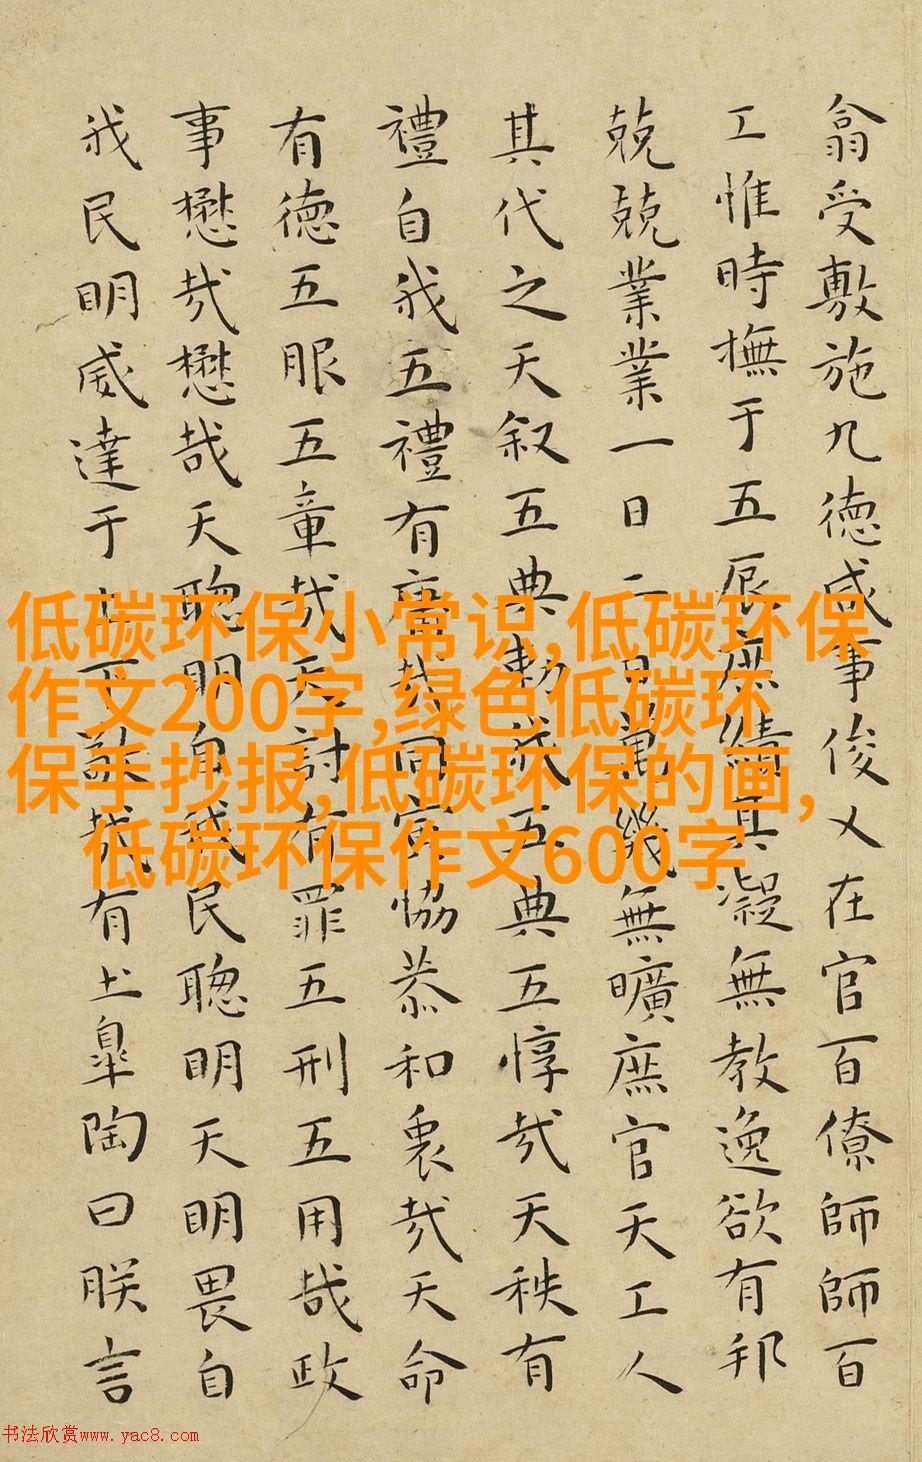 翕受敷施九德咸事俊乂在官百僚師師百
工惟時撫于五辰庶績其凝無教逸欲有邦
兢兢業業一日二日萬幾無曠庶官天工人
其代之天叙五典勅我五典五惇哉天秩有
禮自我五禮有庸哉同寅恊恭和衷哉天命
有德五服五章哉天討有罪五刑五用哉政
事懋哉懋哉天聦明自我民聦明天明畏自
我民明威達于上下敬哉有土皐陶曰朕言
低碳环保小常识,低碳环保
作文200字,绿色低碳环
保手抄报,低碳环保的画,
低碳环保作文600字
书法欣赏www.yac8.com